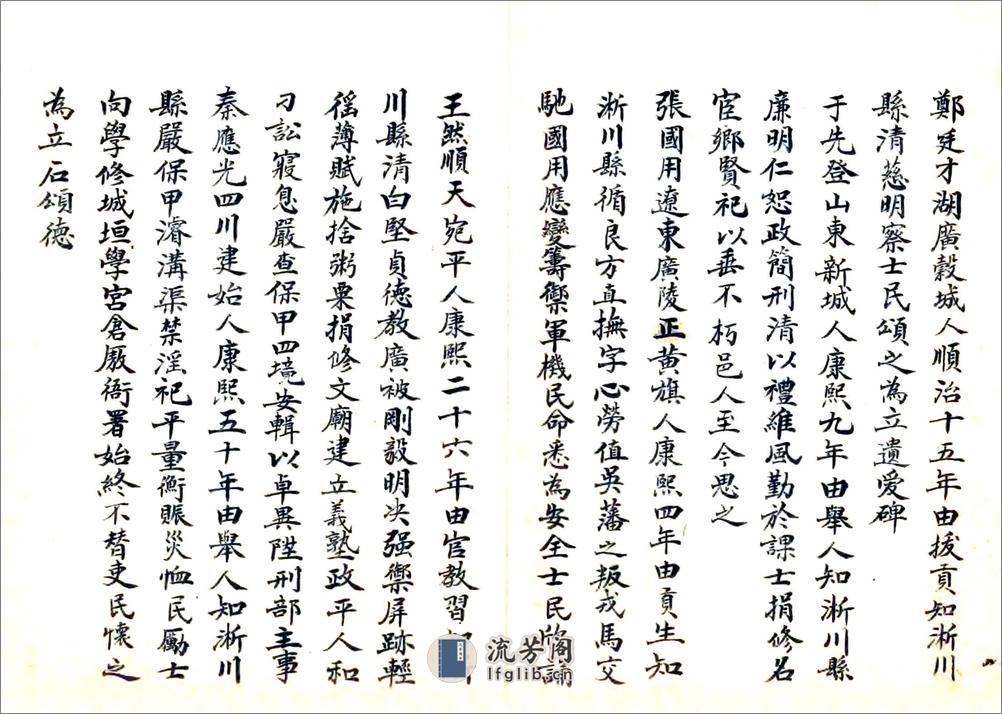 鄭廷才湖廣穀城人順治十五年由拔貢知淅川
縣清慈明察士民頌之為立遺愛碑
于先登山東新城人康熙九年由舉人知淅川縣
廉明仁恕政簡刑清以禮維風勤於課士捐修名
宦鄉賢祀以垂不朽邑人至今思之
張國用遼東廣陵正黃旗人康熙四年由貢生知
淅川縣循良方直撫字心勞值吳藩之叛戎馬交
馳國用應變籌禦軍機民命悉為安全士民
王然順天宛平人康熙二十六年由官教習
川縣清白堅貞德教廣被剛毅明决强禦屏跡輕
徭薄賦施捨粥粟捐修文廟建立義塾政平人和
刁訟寢息嚴查保甲四境安輯以卓異陞刑部主事
秦應光四川建始人康熙五十年由舉人知淅川
縣嚴保甲濬溝渠禁淫祀平量衡賑災恤民勵士
向學修城垣學宮倉廒衙署始終不替吏民懷之
為立石頌德
流芳閣
lfglib.cn